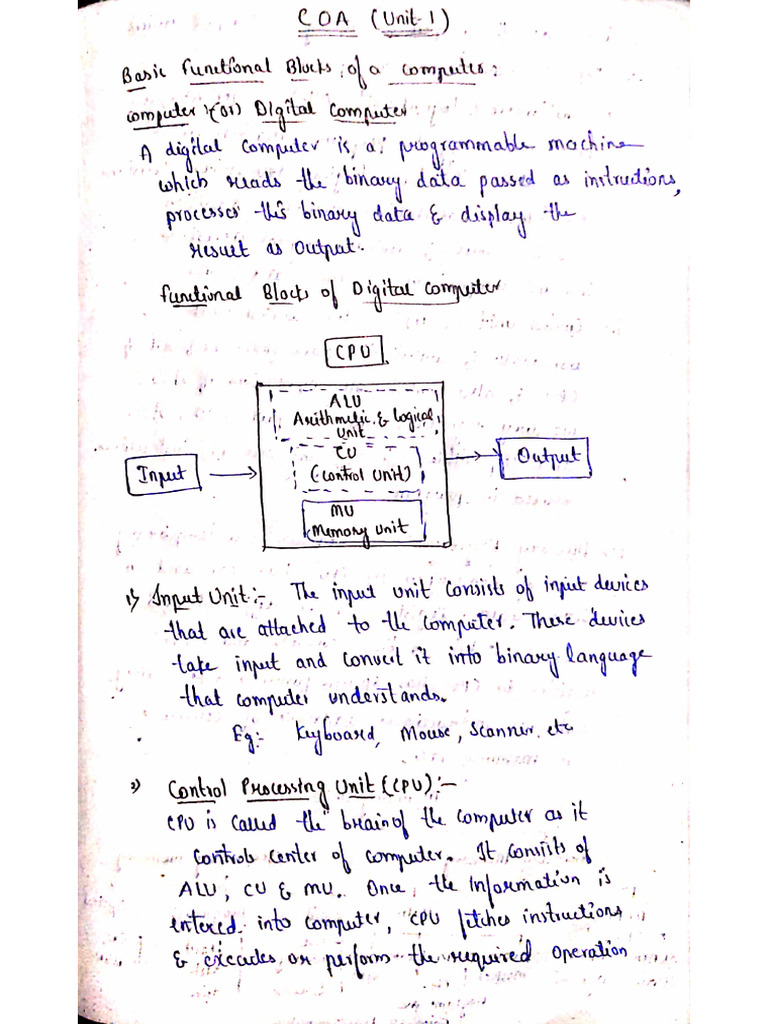 COA (Unit-1)
Basic Functional Blocks of a computer:
computer :(or) Digital Computer:
A digital computer is a programmable machine
which reads the binary data passed as instructions,
processes this binary data & display the
result as output.
Functional Blocks of Digital Computer
CPU
ALU
Arithmetic & Logical
Unit
CU
(Control Unit)
MU
Memory Unit
Input
Output
1) Input Unit:- The input unit consists of input devices
that are attached to the computer. These devices
take input and convert it into binary language
that computer understands.
Eg:- Keyboard, Mouse, Scanner. etc
2) Control Processing Unit (CPU):-
CPU is called the brain of the computer as it
controls center of computer. It consists of
ALU, CU & MU. Once, the information is
entered into computer, CPU fetches instructions
& executes or perform the required operation